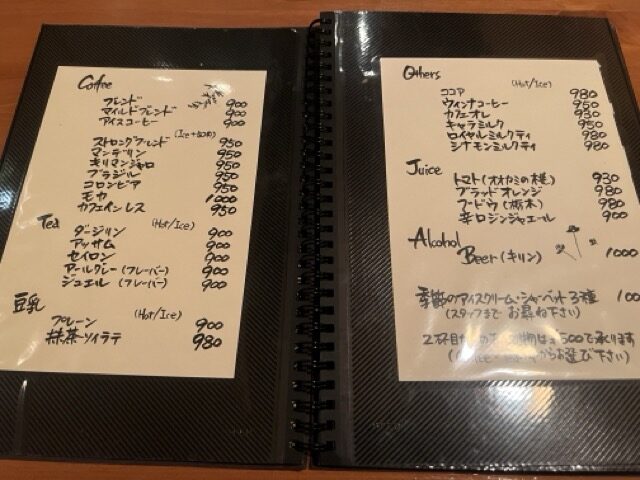 Coffee
ブレンド 900
マイルドブレンド 900
アイスコーヒー 900
(Ice +50円)
ストロングブレンド 950
マンデリン 950
キリマンジャロ 950
ブラジル 950
コロンビア 950
モカ 1000
カフェインレス 950
Tea (Hot/Ice)
ダージリン 900
アッサム 900
セイロン 900
アールグレー(フレーバー) 900
ジュエル(フレーバー) 900
豆乳 (Hot/Ice)
プレーン 900
抹茶ソイラテ 980
Others (Hot/Ice)
ココア 980
ウィンナコーヒー 950
カフェオレ 930
キャラミルク 950
ロイヤルミルクティ 980
シナモンミルクティ 980
Juice
トマト(オオカミの桃) 930
ブラッドオレンジ 980
ブドウ(栃木) 980
辛口ジンジャエール 900
Alcohol
Beer(キリン) 1000
季節のアイスクリーム・シャーベット3種 100
(スタッフまでお尋ね下さい)
2杯目 物は¥500で承ります
からお選び下さい)